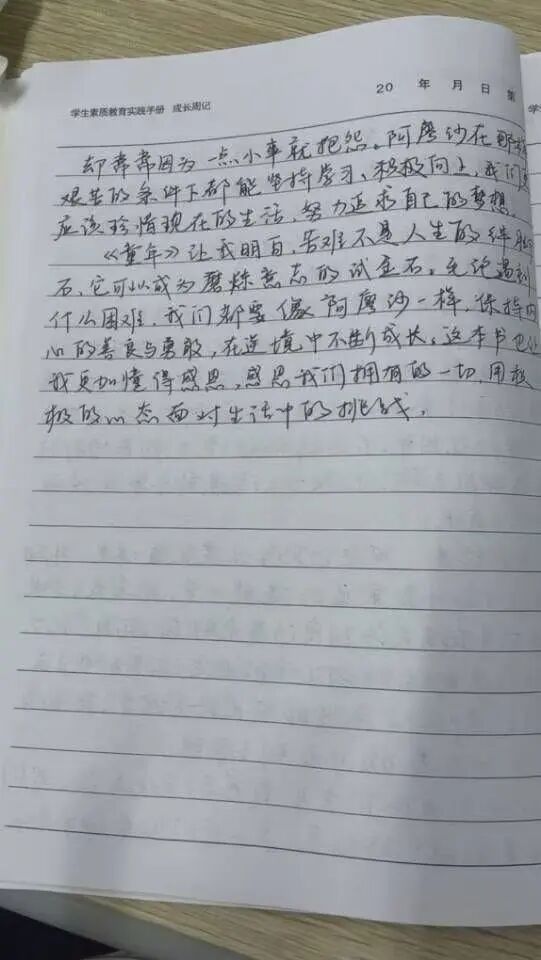 20 年 月 日 第
学生素质教育实践手册 成长周记
却常常因为一点小事就抱怨。阿廖沙在那样
艰苦的条件下都能坚持学习、积极向上，我们更
应该珍惜现在的生活，努力追求自己的梦想。
《童年》让我明白，苦难不是人生的绊脚
石，它可以成为磨炼意志的试金石。无论遇到
什么困难，我们都要像阿廖沙一样，保持内
心的善良与勇敢，在逆境中不断成长。这本书也让
我更加懂得感恩，感恩我们拥有的一切，用积
极的心态面对生活中的挑战。